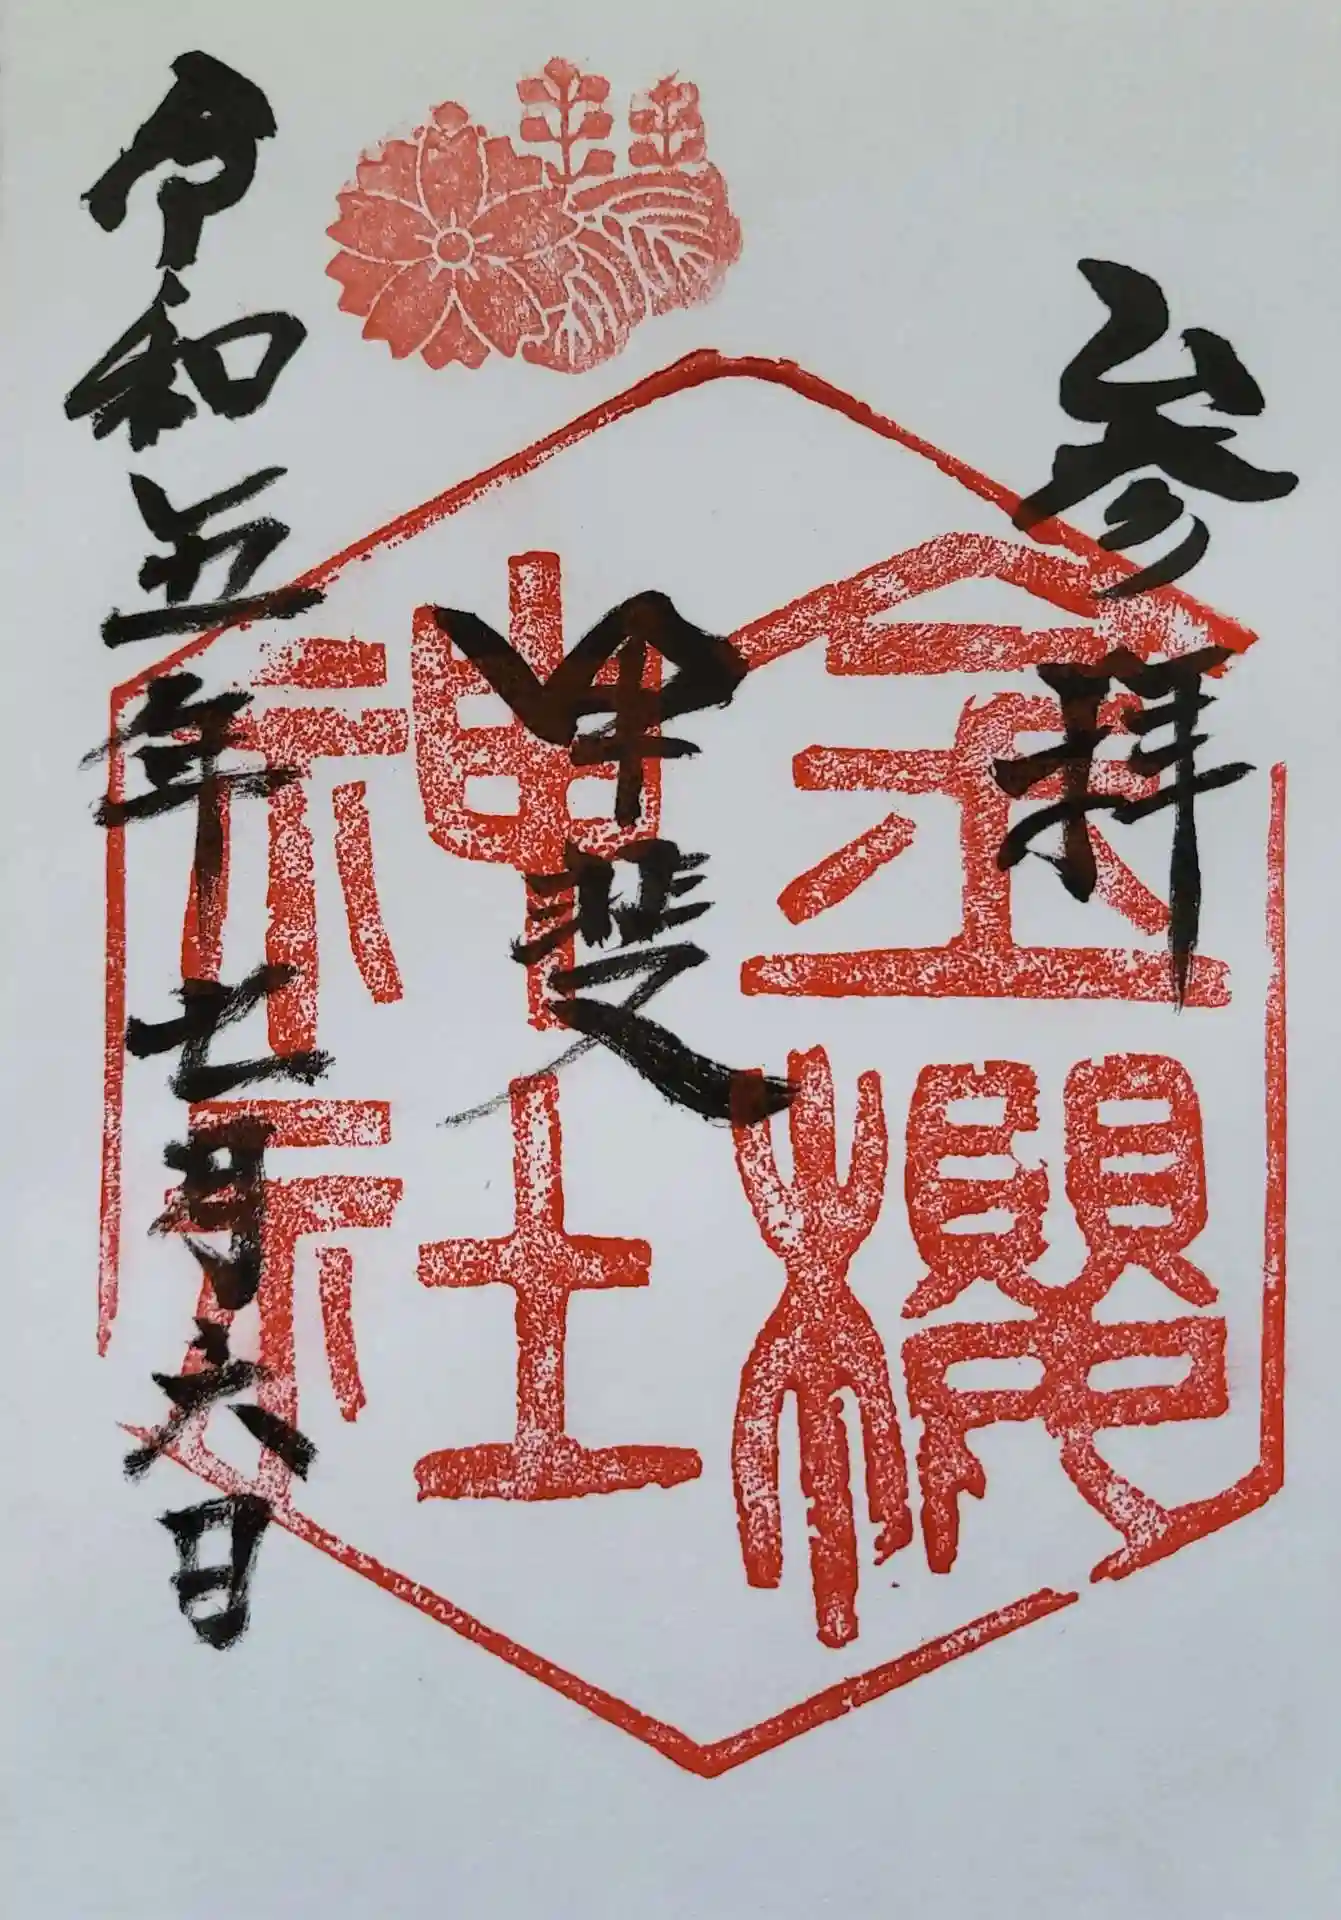 参拝
金櫻
神社
甲斐
令和五年七月六日